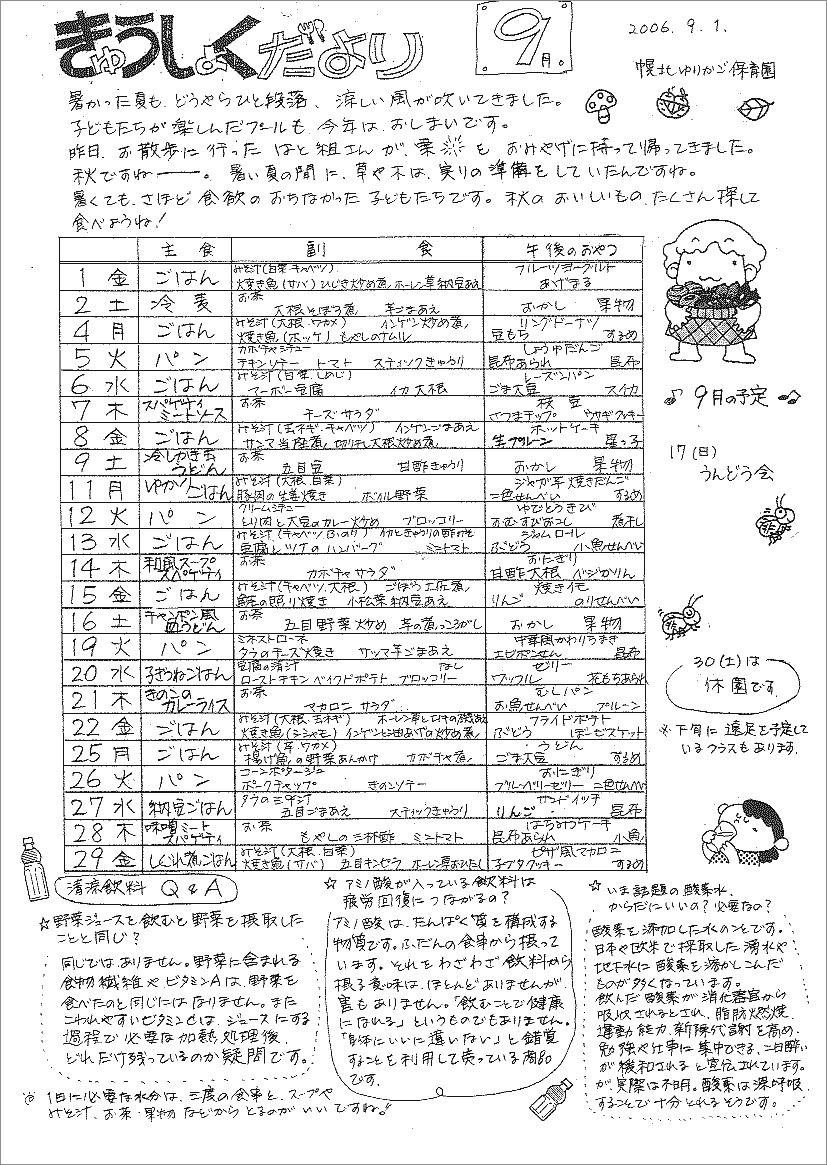 きゅうしょくだより
9月
2006.9.1.
幌北ゆりかご保育園
暑かった夏も、どうやらひと段落、涼しい風が吹いてきました。
子どもたちが楽しんだプールも、今年は、おしまいです。
昨日、お散歩に行った はと組さんが、栗を おみやげに持って帰ってきました。
秋ですねー。暑い夏の間に、草や木は、実りの準備をしていたんですね。
暑くても、さほど食欲のおちなかった子どもたちです。秋のおいしいもの、たくさん探して
食べようね!
主食 副食 午後のおやつ
1 金 ごはん みそ汁(白菜・キャベツ) 焼き魚(サバ) ひじき炒め煮 ホーレン草納豆あえ フルーツヨーグルト
2 土 冷麦 お茶 大根とごぼう煮 芋ごまあえ おかし 果物
4 月 ごはん みそ汁(大根・ワカメ) インゲン炒め煮 焼き魚(ホッケ) もやしのナムル リングドーナツ 豆もち するめ
5 火 パン カボチャシチュー チキンソテー トマト スティックきゅうり しょうゆだんご 昆布あられ 昆布
6 水 ごはん みそ汁(白菜・しめじ) マーボー豆腐 イカ大根 レーズンパン ごま大豆 スイカ
7 木 スパゲティミートソース お茶 チーズサラダ 枝豆 さつまチップ
8 金 ごはん みそ汁(玉ネギ・キャベツ) インゲンごまあえ サンマ当座煮 切干大根炒め煮 ホットケーキ 生プルーン 星っ子
9 土 冷しかき玉うどん お茶 五目豆 甘酢きゅうり おかし 果物
11 月 ゆかりごはん みそ汁(大根・白菜) 豚肉の生姜焼き ボイル野菜 ジャガ芋焼きだんご 二色せんべい するめ
12 火 パン クリームシチュー とり肉と大豆のカレー炒め ブロッコリー ゆでとうきび おむすびおこし 煮干し
13 水 ごはん みそ汁(キャベツ・ふのり) イカときゅうりの酢みそ 豆腐とツナのハンバーグ ミニトマト ジャムロール ぶどう 小魚せんべい
14 木 和風スープスパゲティ お茶 カボチャサラダ おにぎり 甘酢大根 ベジかりん
15 金 ごはん みそ汁(キャベツ・大根) ごぼう土佐煮 鮭の照り焼き 小松菜納豆あえ 焼き芋 りんご のりせんべい
16 土 チャンポン風皿うどん お茶 五目野菜炒め 芋の煮っころがし おかし 果物
19 火 パン ミネストローネ タラのチーズ焼き サツマ芋ごまあえ 中華風かわりちまき エビポンせん 昆布
20 水 子ぎつねごはん 豆腐の清汁 なし ローストチキン ベイクドポテト ブロッコリー ゼリー ワッフル 花もちあられ
21 木 きのこのカレーライス お茶 マカロニサラダ むしパン お魚せんべい プルーン
22 金 ごはん みそ汁(大根・玉ネギ) 焼き魚(シシャモ) インゲンと油あげの炒め煮 フライドポテト ぶどう
25 月 ごはん みそ汁(芋・ワカメ) 揚げ魚の野菜あんかけ カボチャ煮 うどん ごま大豆 するめ
26 火 パン コーンポタージュ ポークチャップ きのこソテー おにぎり ブルーベリーゼリー 二色せんべい
27 水 納豆ごはん タラの三平汁 五目ごまあえ スティックきゅうり サンドイッチ りんご 昆布
28 木 味噌ミートスパゲティ お茶 もやしの三杯酢 ミニトマト はちみつケーキ 昆布あられ 小魚
29 金 しぐれ煮ごはん みそ汁(大根・白菜) 焼き魚(サバ) 五目キンピラ ホーレン草おひたし ピザ風マカロニ するめ
♪ 9月の予定 ♪
17(日)
うんどう会
30(土)は
休園です。
※下旬に遠足を予定して
いるクラスもあります。
清涼飲料 Q&A
☆野菜ジュースを飲むと野菜を摂取した
ことと同じ?
同じではありません。野菜に含まれる
食物繊維やビタミンAは、野菜を
食べたのと同じにはなりません。また
こわれやすいビタミンCは、ジュースにする
過程で必要な加熱処理後、
どれだけ残っているのか疑問です。
☆アミノ酸が入っている飲料は
疲労回復につながるの?
アミノ酸は、たんぱく質を構成する
物質です。ふだんの食事から摂って
います。それをわざわざ飲料から
摂る意味は、ほとんどありませんが
害もありません。「飲むことで健康
になれる」というものでもありません。
「身体にいいに違いない」と錯覚
することを利用して売っている商品
です。
☆いま話題の酸素水、
からだにいいの?必要なの?
酸素を添加した水のことです。
日本や欧米で採取した湧水や
地下水に酸素を溶かしこんだ
ものが多くなっています。
飲んだ酸素が消化器官から
吸収されるとされ、脂肪燃焼、
運動能力、新陳代謝を高め、
勉強や仕事に集中できる、二日酔い
が緩和されると宣伝されています。
が、実際は不明。酸素は深呼吸
することで十分とれるそうです。
◎ 1日に必要な水分は、三度の食事と、スープや
みそ汁、お茶・果物などからとるのがいいですね!!